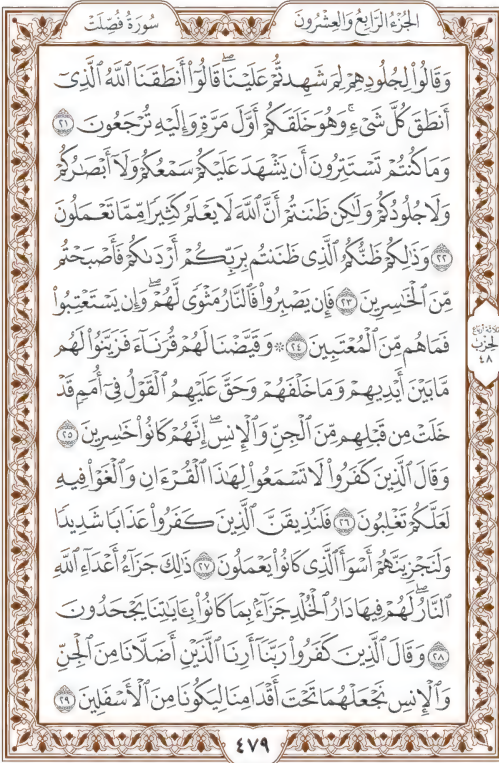 سُورَةُ فُصِّلَتْ
الجُزْءُ الرَّابِعُ وَالعِشْرُونَ
وَقَالُواْ لِجُلُودِهِمْ لِمَ شَهِدتُّمْ عَلَيْنَاۖ قَالُوٓاْ أَنطَقَنَا ٱللَّهُ ٱلَّذِىٓ
أَنطَقَ كُلَّ شَىْءٖۚ وَهُوَ خَلَقَكُمْ أَوَّلَ مَرَّةٖ وَإِلَيْهِ تُرْجَعُونَ ٢١
وَمَا كُنتُمْ تَسْتَتِرُونَ أَن يَشْهَدَ عَلَيْكُمْ سَمْعُكُمْ وَلَآ أَبْصَٰرُكُمْ
وَلَا جُلُودُكُمْ وَلَٰكِن ظَنَنتُمْ أَنَّ ٱللَّهَ لَا يَعْلَمُ كَثِيرٗا مِّمَّا تَعْمَلُونَ
٢٢ وَذَٰلِكُمْ ظَنُّكُمُ ٱلَّذِى ظَنَنتُم بِرَبِّكُمْ أَرْدَىٰكُمْ فَأَصْبَحْتُم
مِّنَ ٱلْخَٰسِرِينَ ٢٣ فَإِن يَصْبِرُواْ فَٱلنَّارُ مَثْوٗى لَّهُمْۖ وَإِن يَسْتَعْتِبُواْ
فَمَا هُم مِّنَ ٱلْمُعْتَبِينَ ٢٤ ۞ وَقَيَّضْنَا لَهُمْ قُرَنَآءَ فَزَيَّنُواْ لَهُم
مَّا بَيْنَ أَيْدِيهِمْ وَمَا خَلْفَهُمْ وَحَقَّ عَلَيْهِمُ ٱلْقَوْلُ فِىٓ أُمَمٖ قَدْ
خَلَتْ مِن قَبْلِهِم مِّنَ ٱلْجِنِّ وَٱلْإِنسِۖ إِنَّهُمْ كَانُواْ خَٰسِرِينَ ٢٥
وَقَالَ ٱلَّذِينَ كَفَرُواْ لَا تَسْمَعُواْ لِهَٰذَا ٱلْقُرْءَانِ وَٱلْغَوْاْ فِيهِ
لَعَلَّكُمْ تَغْلِبُونَ ٢٦ فَلَنُذِيقَنَّ ٱلَّذِينَ كَفَرُواْ عَذَابٗا شَدِيدٗا
وَلَنَجْزِيَنَّهُمْ أَسْوَأَ ٱلَّذِى كَانُواْ يَعْمَلُونَ ٢٧ ذَٰلِكَ جَزَآءُ أَعْدَآءِ ٱللَّهِ
ٱلنَّارُۖ لَهُمْ فِيهَا دَارُ ٱلْخُلْدِ جَزَآءَۢ بِمَا كَانُواْ بِـَٔايَٰتِنَا يَجْحَدُونَ
٢٨ وَقَالَ ٱلَّذِينَ كَفَرُواْ رَبَّنَآ أَرِنَا ٱلَّذَيْنِ أَضَلَّانَا مِنَ ٱلْجِنِّ
وَٱلْإِنسِ نَجْعَلْهُمَا تَحْتَ أَقْدَامِنَا لِيَكُونَا مِنَ ٱلْأَسْفَلِينَ ٢٩
ثلاثة أرباع
الحزب
٤٨
٤٧٩